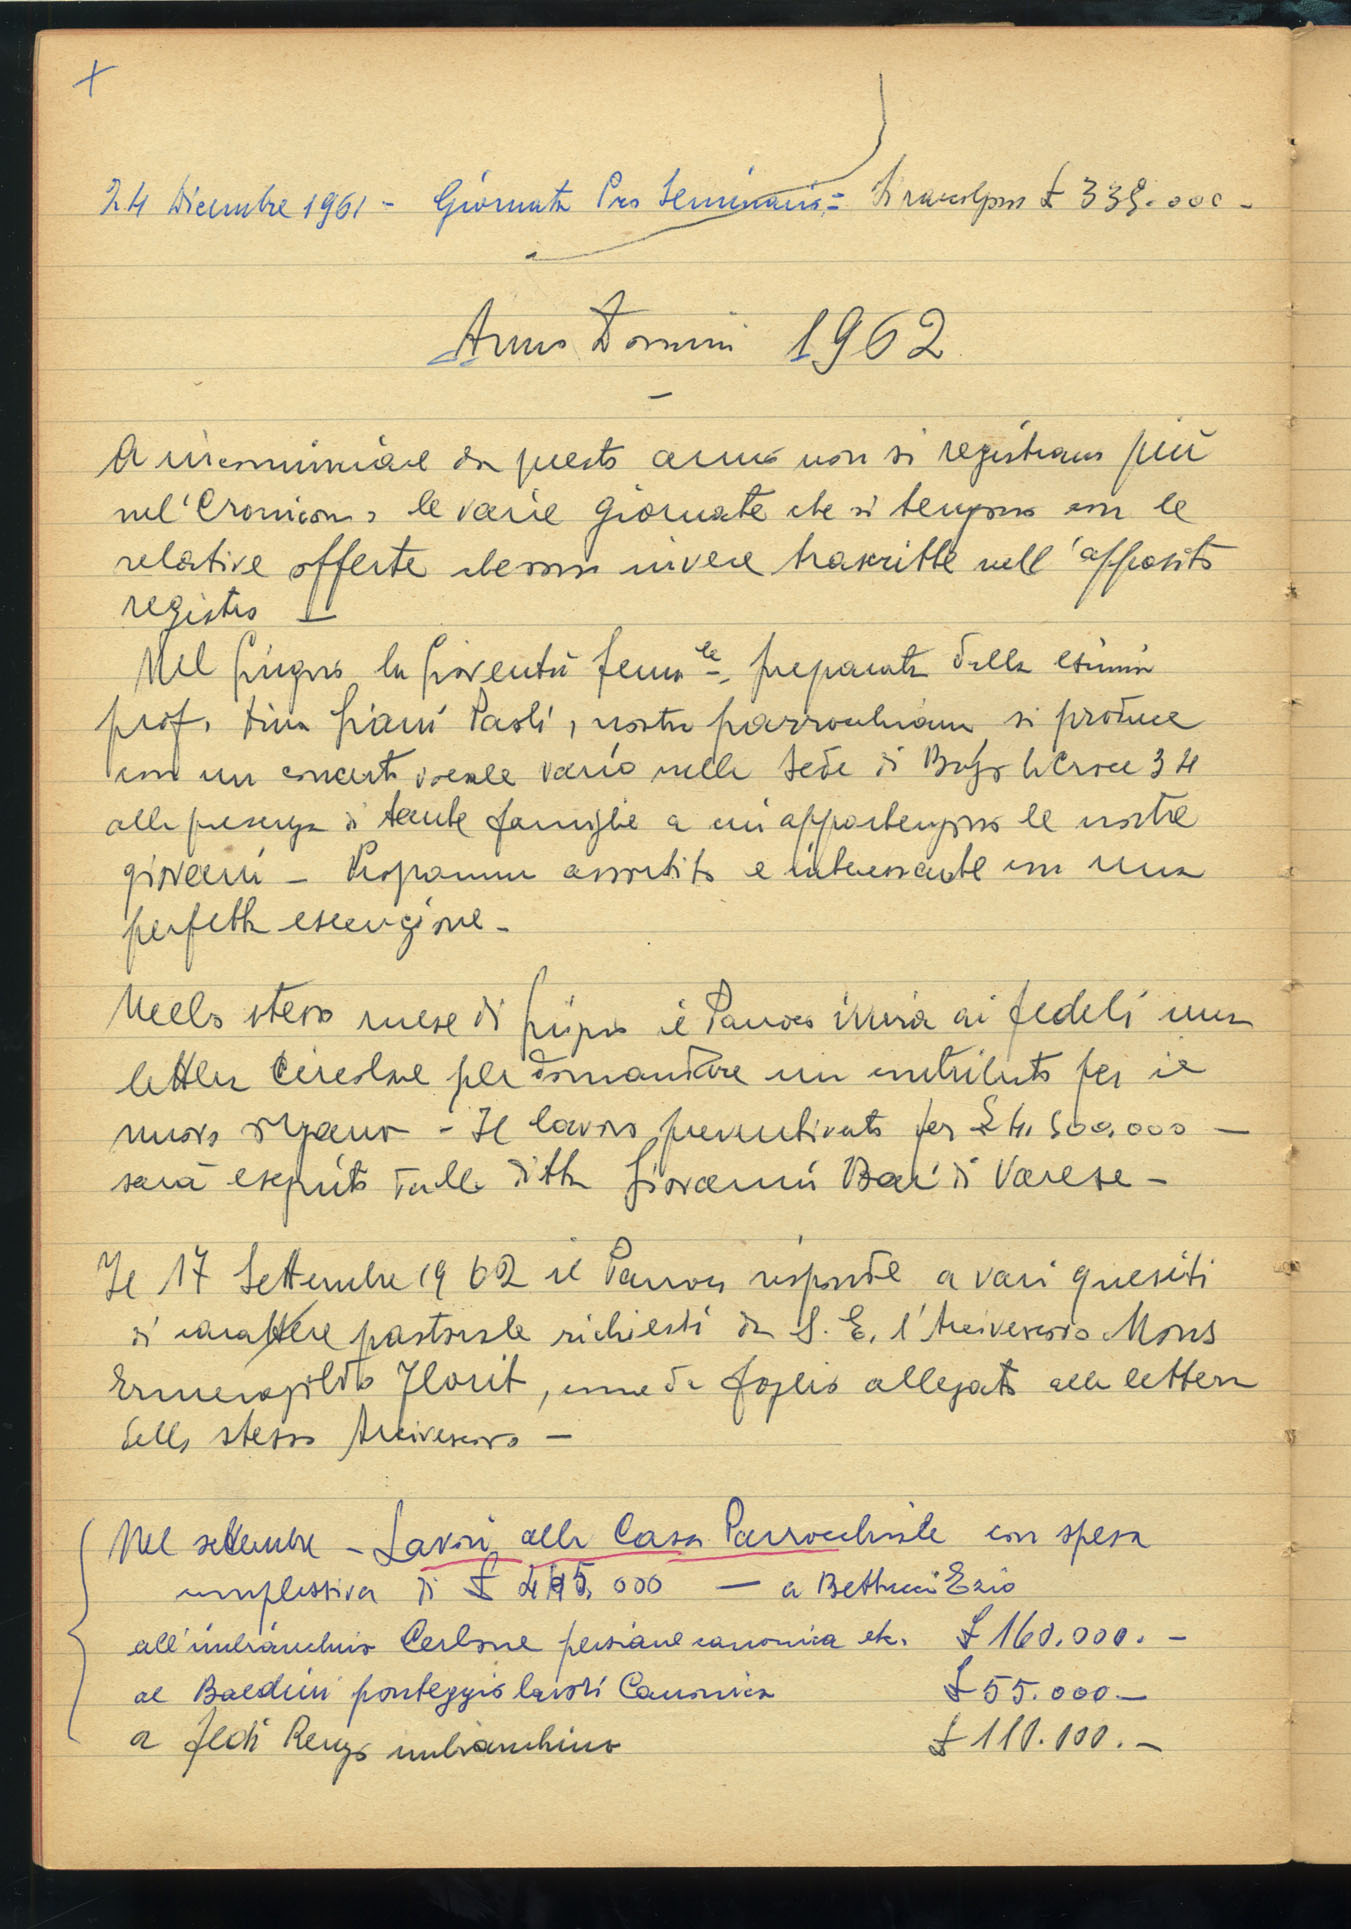 24 Dicembre 1961 - Giornata Pro Seminario = Si raccolgono £ 339.000 -
Anno Domini 1962
A incominciare da questo anno non si registrano più
nel "Cronicon", le varie giornate che si tengono con le
relative offerte che sono invece trascritte nell'apposito
registro -
Nel Giugno la Gioventù Femm.le, preparata dalla esimia
prof. Dina Giani Paoli, nostra parrocchiana si produce
con un concerto vocale vario nella Sede di Borgo la Croce 34
alla presenza di tante famiglie a cui appartengono le nostre
giovani - Programma assortito e interessante con una
perfetta esecuzione -
Nello stesso mese di Giugno il Parroco invia ai fedeli una
lettera circolare per domandare un contributo per il
nuovo organo - Il lavoro preventivato per £ 4.500.000 -
sarà eseguito dalla ditta Giovanni Bai di Varese -
Il 17 Settembre 1962 il Parroco risponde a vari quesiti
di carattere pastorale richiesti da S. E. l'Arcivescovo Mons
Ermenegildo Florit, come da foglio allegato alla lettera
dello stesso Arcivescovo -
Nel settembre - Lavori alla Casa Parrocchiale con spesa
complessiva di £ 000 - a Bettucci Ezio
all'imbianchino Cerbone persiane canonica etc. £ 160.000. -
al Baldini ponteggio lavori Canonica £ 55.000 -
a Renzo imbianchino £ 110.000. -